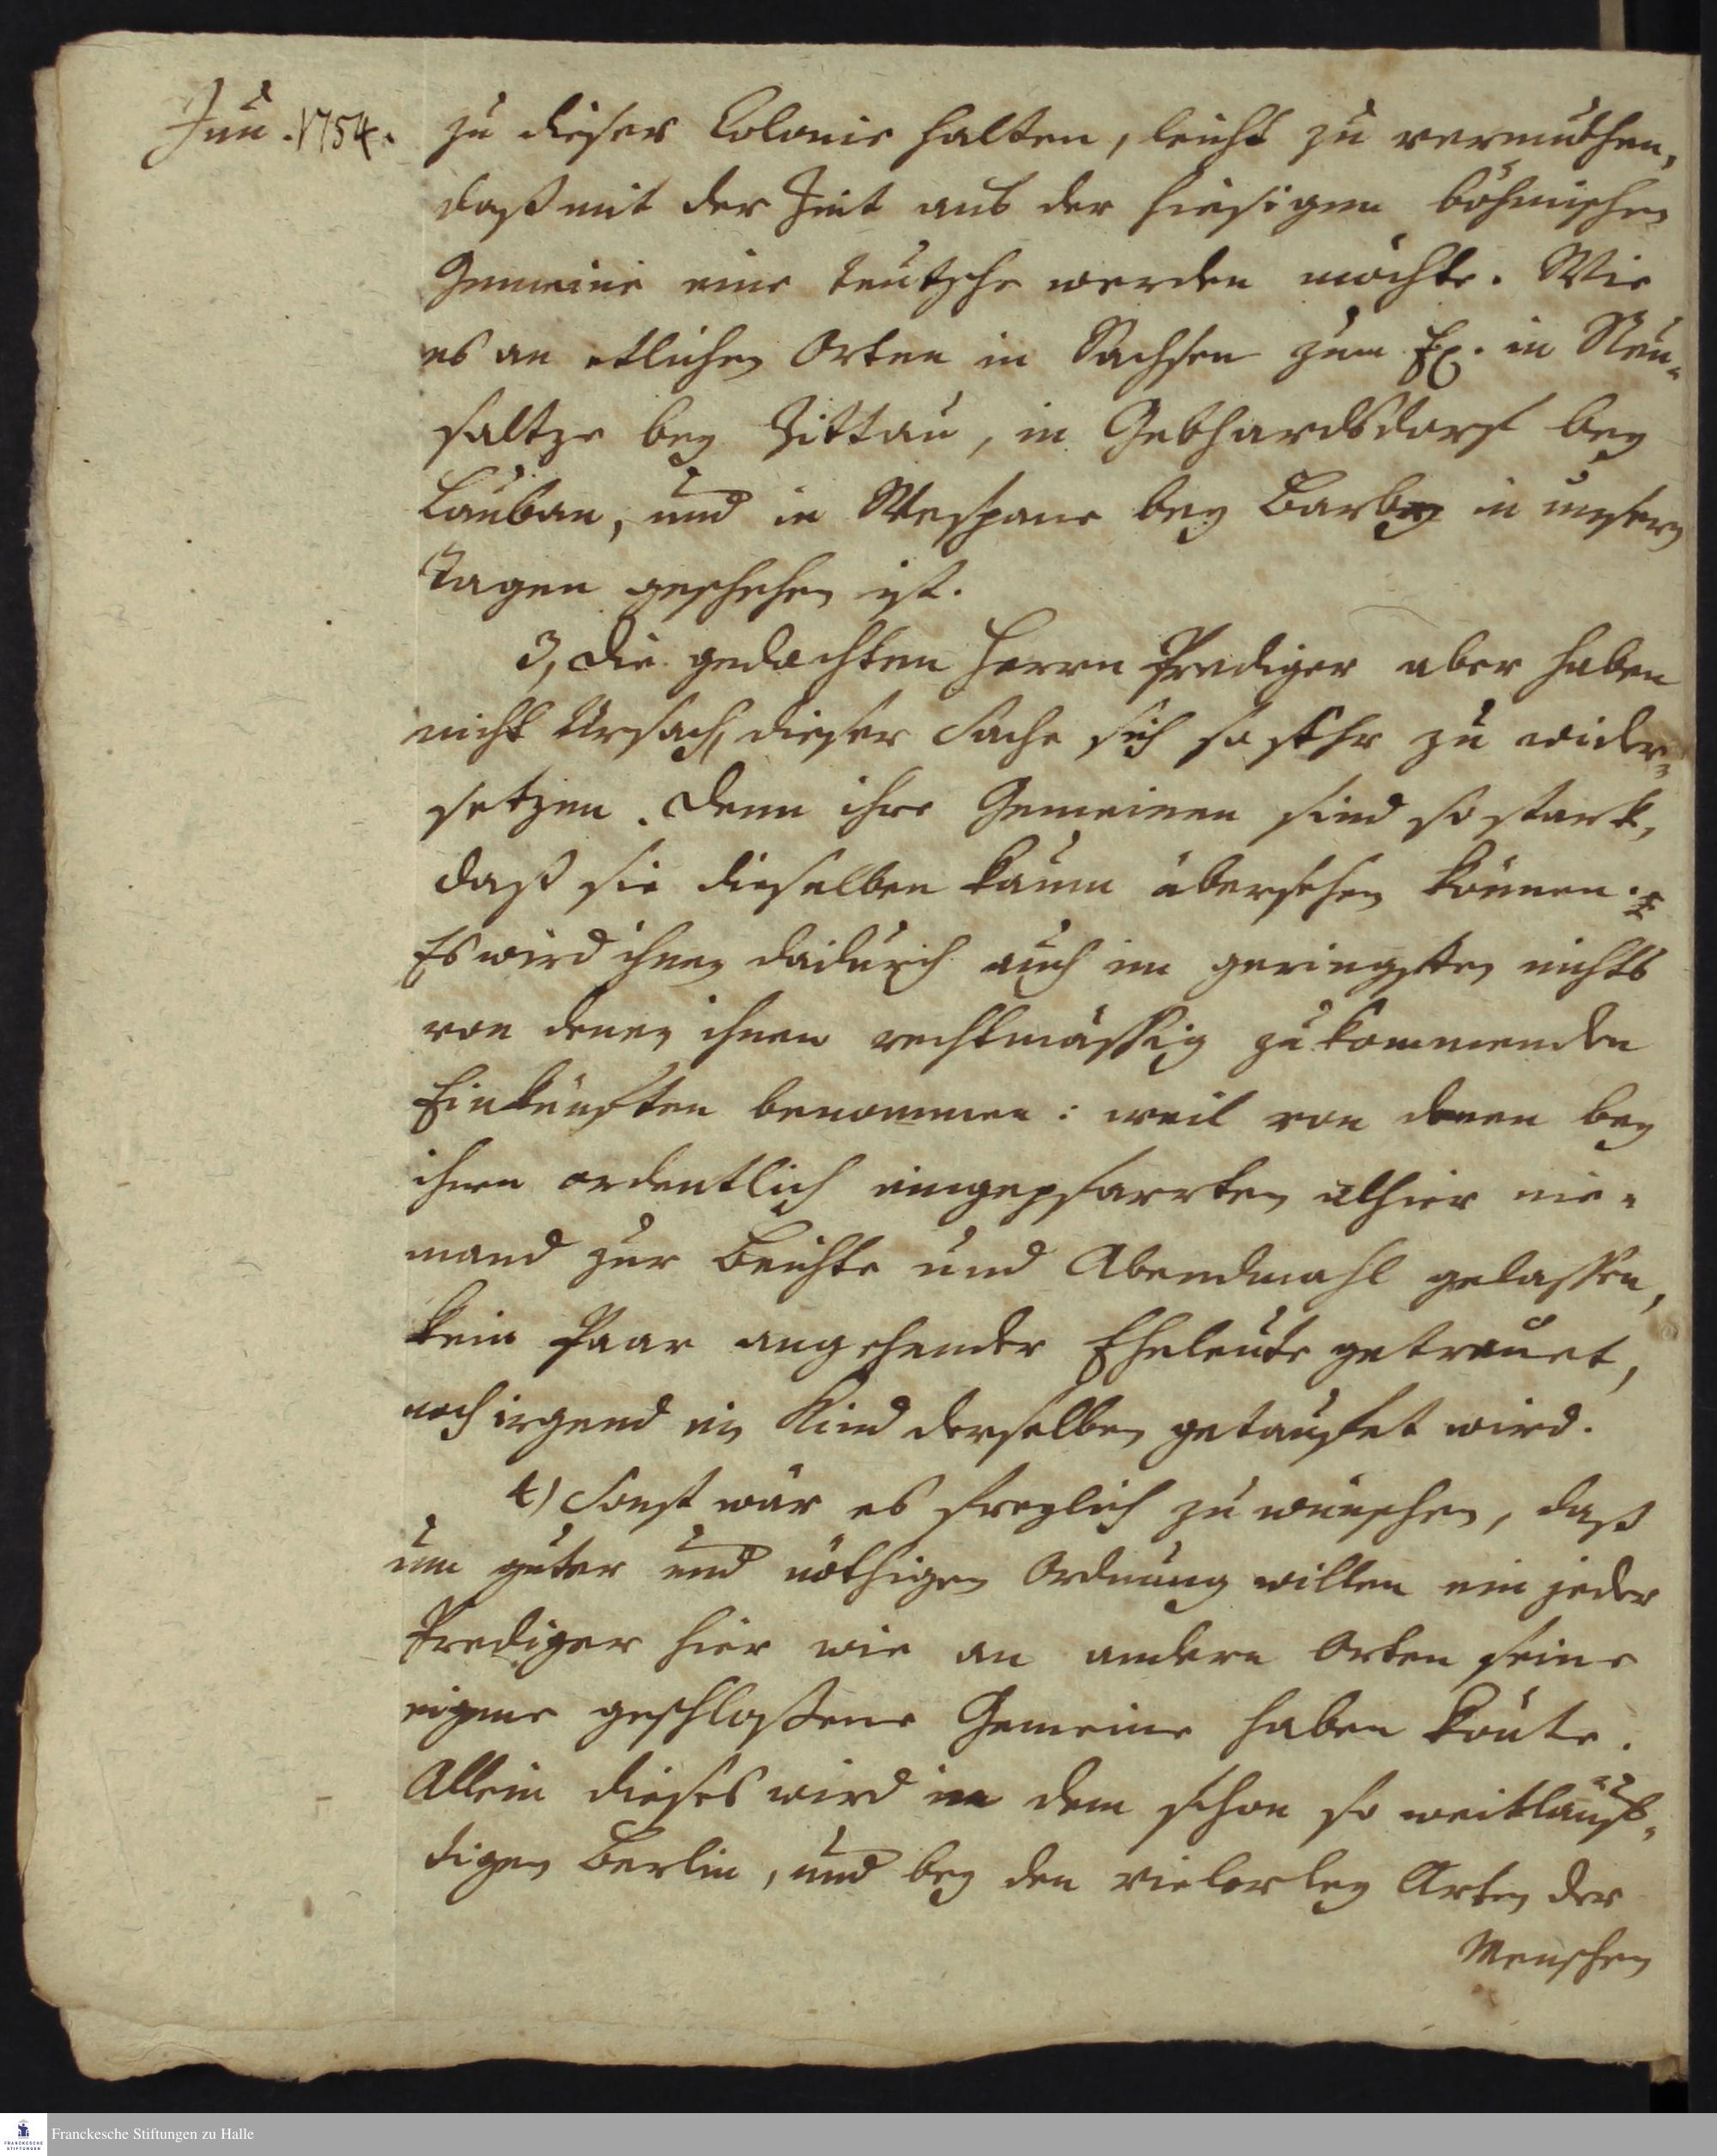 Jun. 1754.
zu dieser Colonie halten, leicht zu vermuthen,
daß mit der Zeit aus der hiesigen böhmischen
Gemeine eine teutsche werden möchte. Wie
es an etlichen Orten in Sachsen zum Ex. in Neu-
saltze bey Zittau, in Gebhardsdorf bey
Lauban, und in Wespane bey Barby in unsern
Tagen geschehen ist.
3, Die gedachten Herrn Prediger aber haben
nicht Ursach, dieser Sache sich so sehr zu wider-
setzen. Denn ihre Gemeinen sind so stark,
daß sie dieselben kaum übersehen können.
Es wird ihnen dadurch auch im geringsten nichts
von denen ihnen rechtmässig zukommenden
Einkünften benommen: weil von denen bey
ihnen ordentlich eingepfarrten alhier nie-
mand zur Beichte und Abendmahl gelassen,
kein Paar angehender Eheleute getrauet,
noch irgend ein Kind derselben getaufet wird.
4) Sonst wär es freylich zu wünschen, daß
um guter und nöthigen Ordnung willen ein jeder
Prediger hier wie an andern Orten seine
eigene geschloßene Gemeine haben könte.
Allein dieses wird in dem schon so weitläuf-
tigen Berlin, und bey den vielerley Arten der
Menschen
Franckesche Stiftungen zu Halle